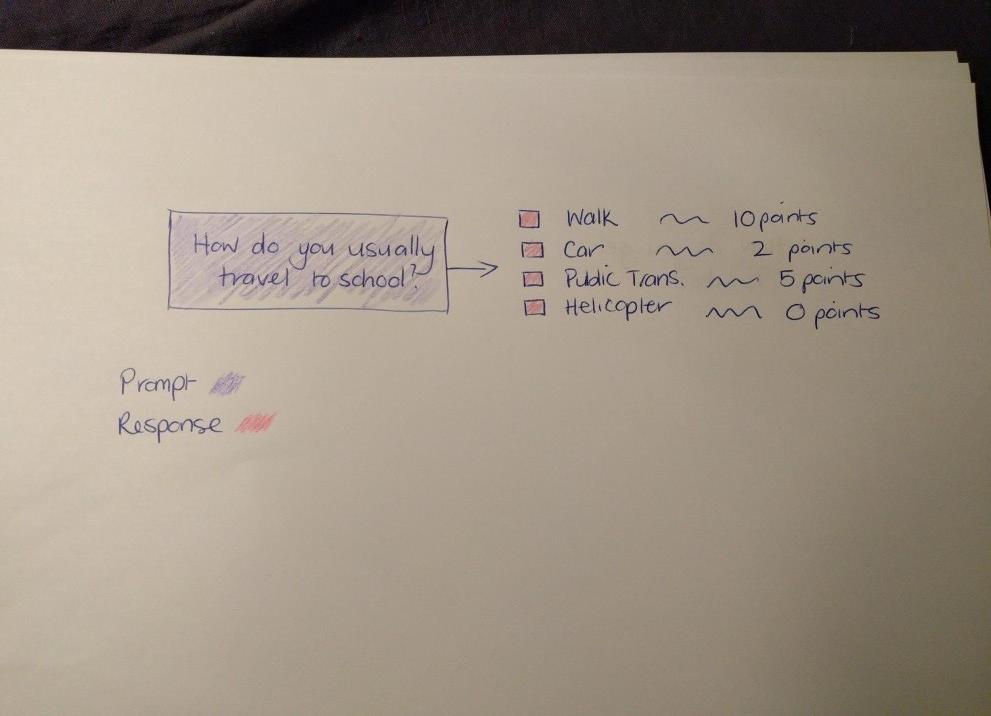 How do you usually
travel to school?
Walk ~ 10 points
Car ~ 2 points
Public Trans. ~ 5 points
Helicopter ~ 0 points
Prompt
Response